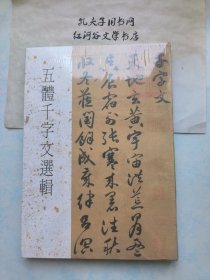 孔夫子旧书网
红河谷文学书店
千字文
天地玄黃宇宙洪荒日月盈
昃辰宿列張寒來暑往秋
收冬藏閏餘成歲律呂調
五體千字文選輯